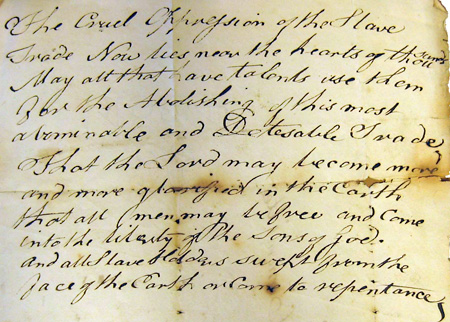 The Cruel Oppression of the Slave
Trade Now lies near the hearts of thousands
May all that have talents use them
for the Abolishing of this most
abominable and Detesable Trade,
That the Lord may become more
and more glorified in the Earth
that all men may be free and Come
into the liberty of the Sons of God.
and all Slave Holders swept from the
face of the Earth or Come to repentance,